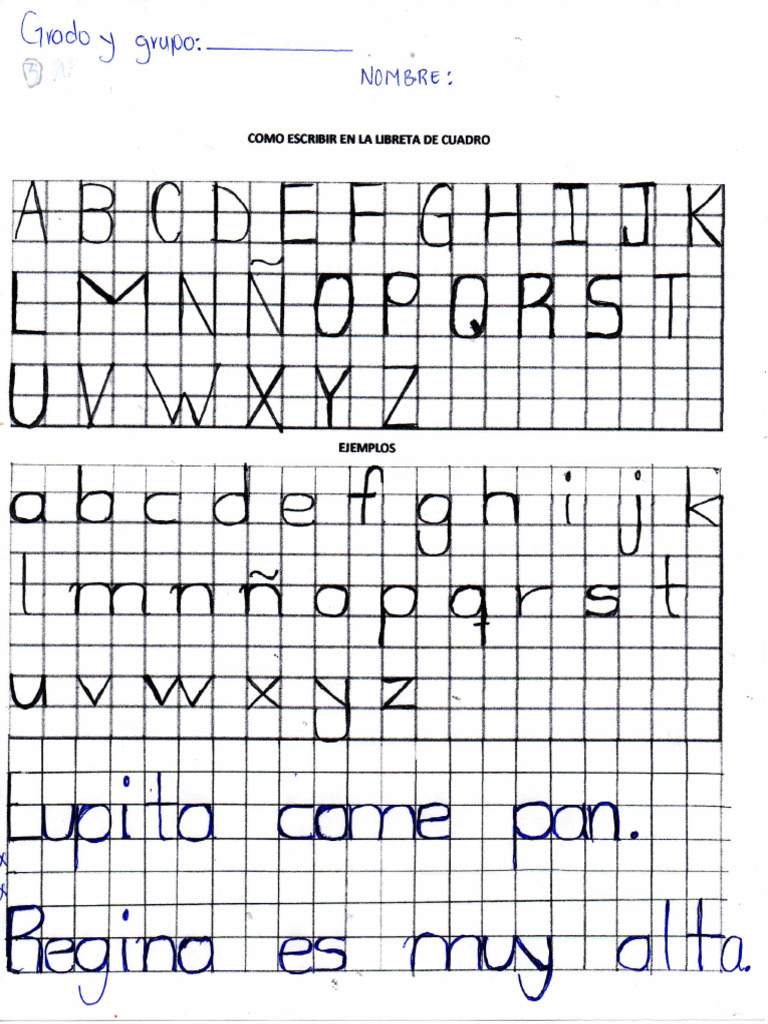 Grado y grupo:
3
NOMBRE:
COMO ESCRIBIR EN LA LIBRETA DE CUADRO
A B C D E F G H I J K
L M N Ñ O P Q R S T
U V W X Y Z
EJEMPLOS
a b c d e f g h i j k
l m n ñ o p q r s t
u v w x y z
Lupita come pan.
Regina es muy alta.